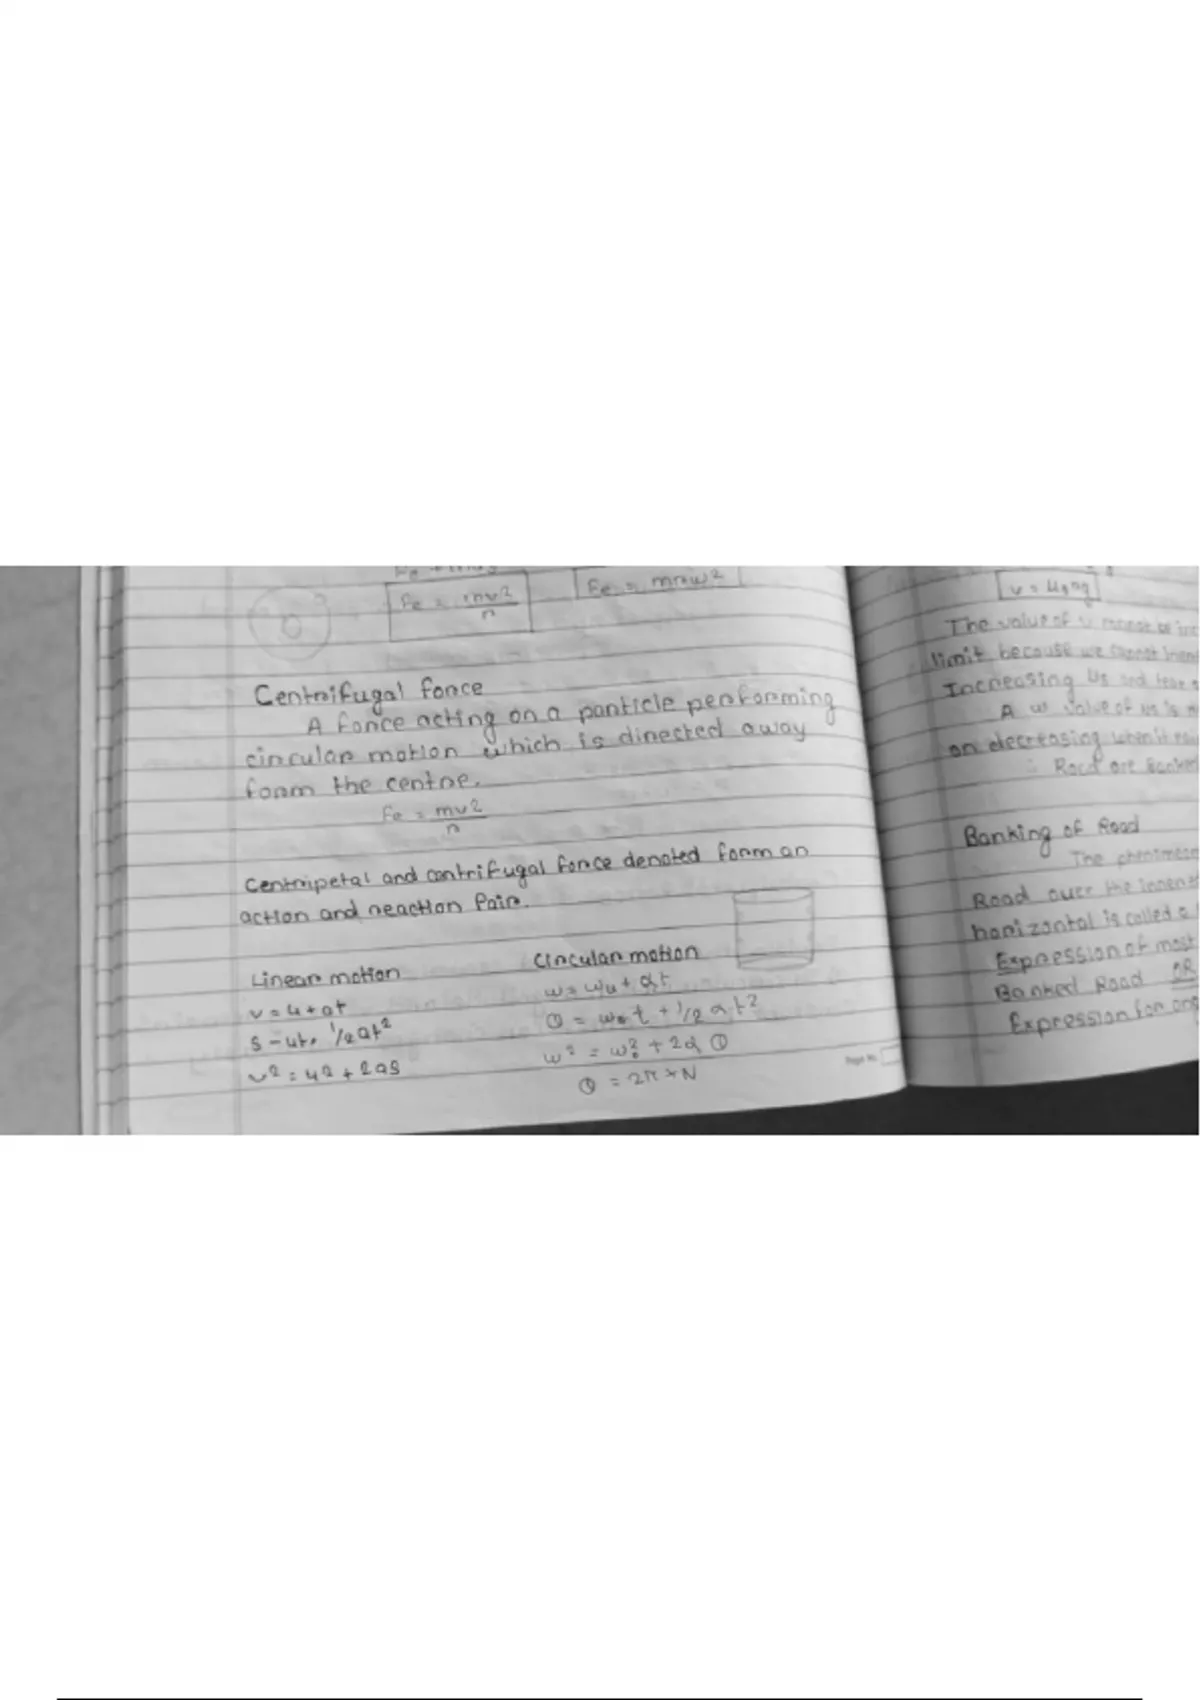 Fc = mv2/r
Fc = mrw2
Centrifugal force
A force acting on a particle performing
circular motion which is directed away
form the centre.
Fc = mv2/r
Centripetal and centrifugal force denoted form an
action and reaction Pair.
Linear motion
v = u + at
s - ut + 1/2 at²
v² = u² + 2as
Circular motion
w = w₀ + αt
θ = w₀ t + 1/2 α t²
w² = w₀² + 2α θ
θ = 2π × N
Page No.
The value of
limit because we cannot
Increasing Us and
A value of us is
on decreasing when it
∴ Road are Banked
Banking of Road
The
Road over the inner
horizontal is called a
Expression of most
Banked Road OR
Expression for